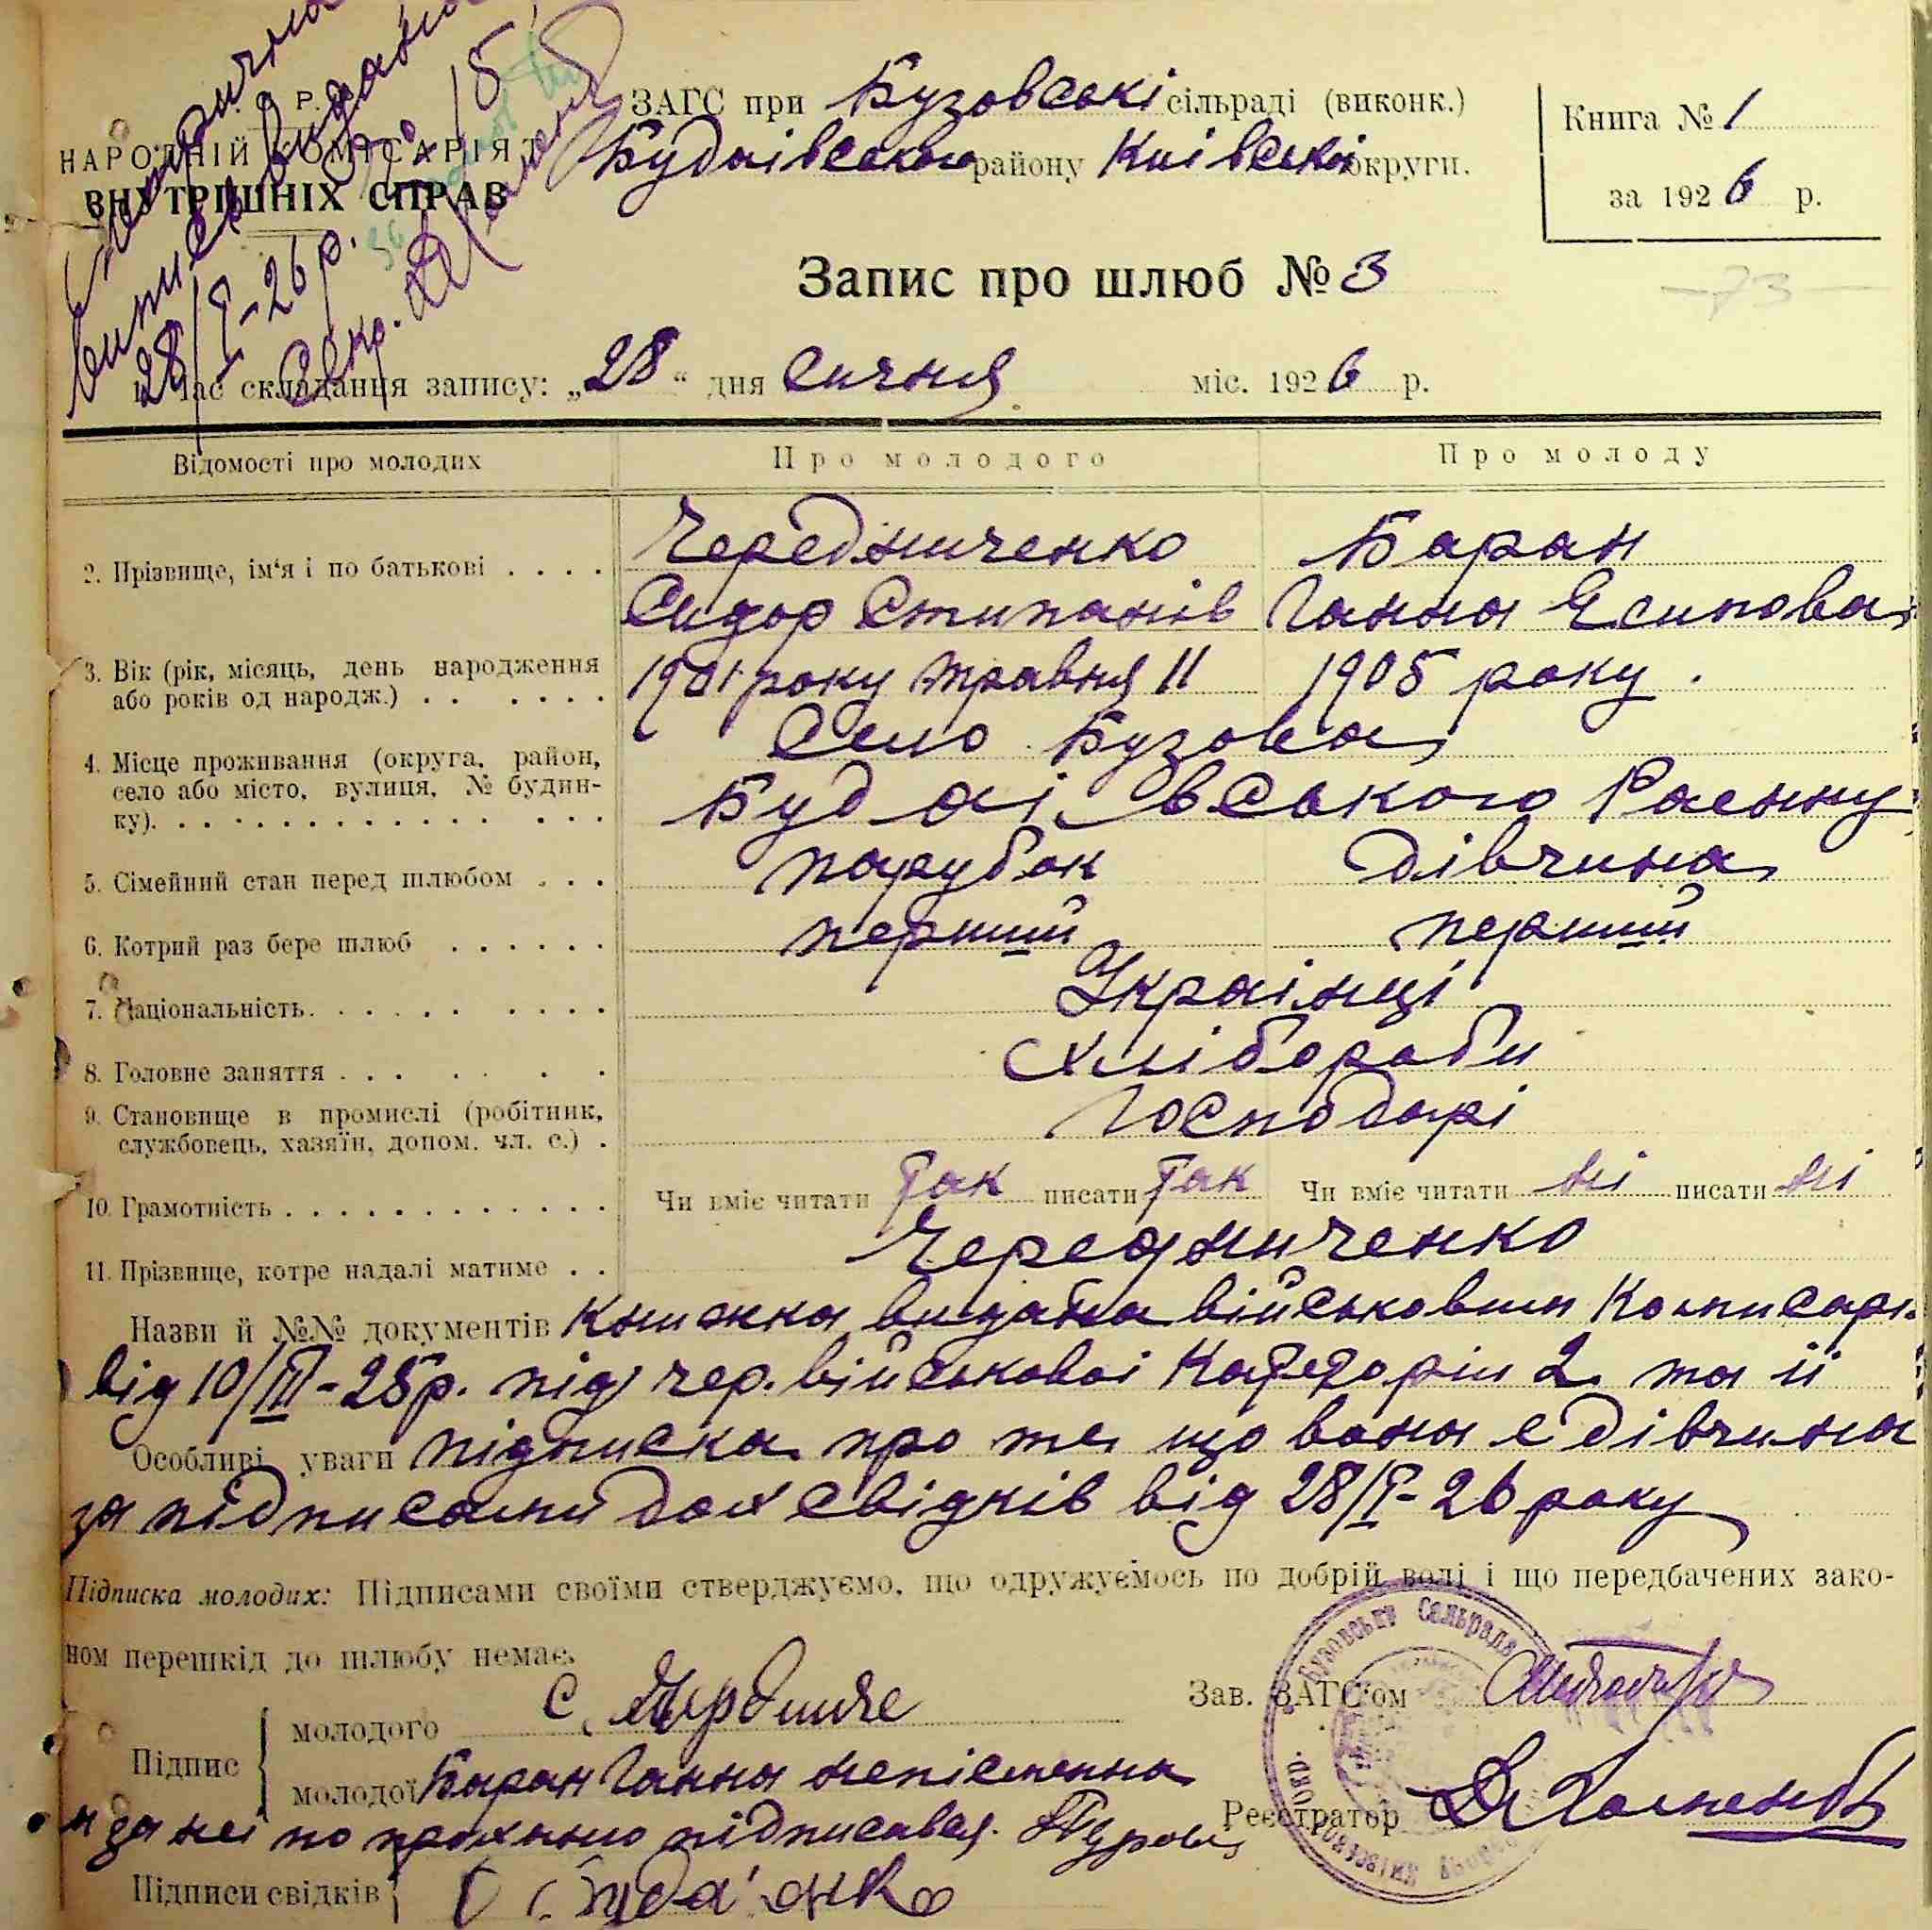 виписка видана
28/I-26 р.
Секр.
Р.
НАРОДНІЙ КОМІСАРІЯТ
ВНУТРІШНІХ СПРАВ
ЗАГС при Бузовські сільраді (виконк.)
Будаівського району Киівськоі округи.
Книга № 1
за 1926 р.
Запис про шлюб № 3
73
1. Час складання запису: „28“ дня Січня міс. 1926 р.
Відомості про молодих Про молодого Про молоду
2. Прізвище, ім‘я і по батькові . . . . Чередниченко Баран
Сидор Стипанів Ганна Есипова
3. Вік (рік, місяць, день народження 1901 року травня 11 1905 року.
або років од народж.) . . . . . .
4. Місце проживання (округа, район, Село Бузова
село або місто, вулиця, № будин- Будаівського Раенну
ку). . . . . . . . . . . . . . .
5. Сімейний стан перед шлюбом . . . парубок дівчина
6. Котрий раз бере шлюб . . . . . . перший перший
7. Національність. . . . . . . . . . Украінці
8. Головне заняття . . . . . . . Хлібороби
9. Становище в промислі (робітник, Господарі
службовець, хазяїн, допом. чл. с.) .
10. Грамотність . . . . . . . . . . . . Чи вміє читати Так писати Так Чи вміє читати ні писати ні
11. Прізвище, котре надалі матиме . . Чередниченко
Назви й №№ документів Книжка видана військовим Комисарі.
від 10/III-25р. під чер. військовоі Категоріи 2 та ії
Особливі уваги підписка про те що вона є дівчина
за підписами двох свідків від 28/I-26 року
Підписка молодих: Підписами своїми стверджуємо, що одружуємось по добрій волі і що передбачених зако-
ном перешкід до шлюбу немає.
Підпис
молодого С.
молодої Баран Ганна неписменна
и за неі по проханню підписався.
Зав. ЗАГС‘ом
Реєстратор
Бузовська Сельрада
Підписи свідків